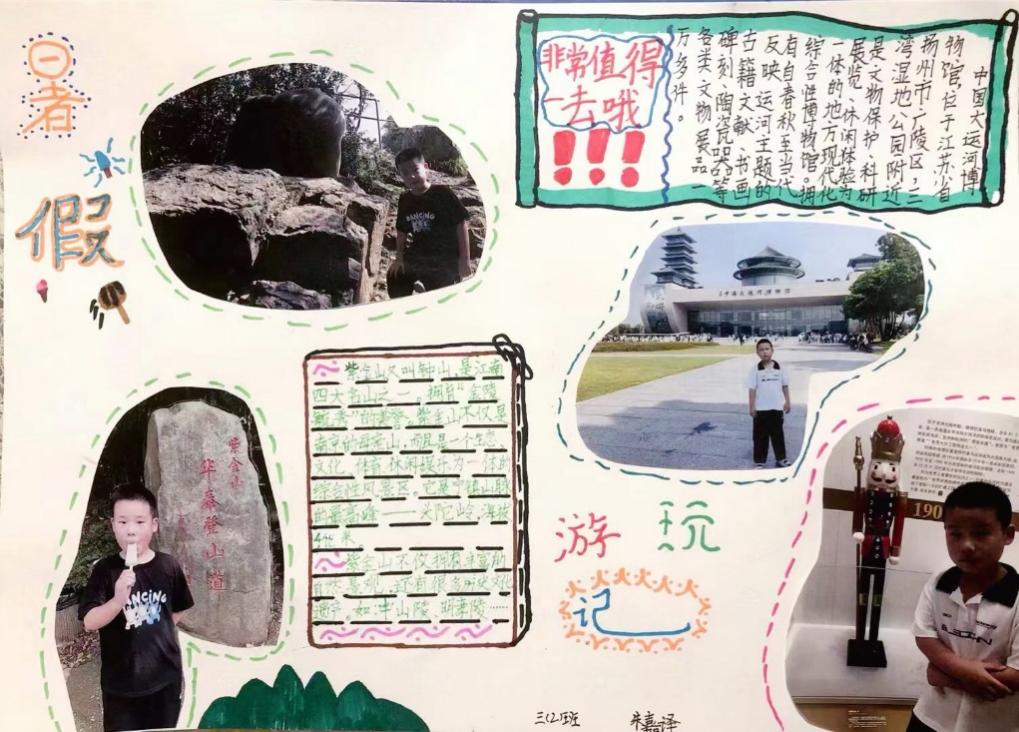 暑
假
非常值得
一去哦
!!!
中国大运河博
物馆,位于江苏省
扬州市广陵区三
湾湿地公园附近
是文物保护、科研
展览、休闲体验为
一体的地方现代化
综合性博物馆。拥
有自春秋至当代
反映运河主题的
古籍文献、书画
碑刻、陶瓷品等
各类文物展品一
万多件。
紫金山又叫钟山,是江南
四大名山之一。拥有"金陵
毓秀"的美誉。紫金山不仅是
南京的母亲山,而且是一个生态、
文化、体育、休闲娱乐为一体的
综合性风景区。它是宁镇山脉
的最高峰——头陀岭,海拔
米
紫金山不仅拥有丰富的
自然景观,还有很多历史文化
遗产,如中山陵、明孝陵……
紫金山
登山道
DANCING
DANCING
190
游玩
记
三(2)班
朱嘉译